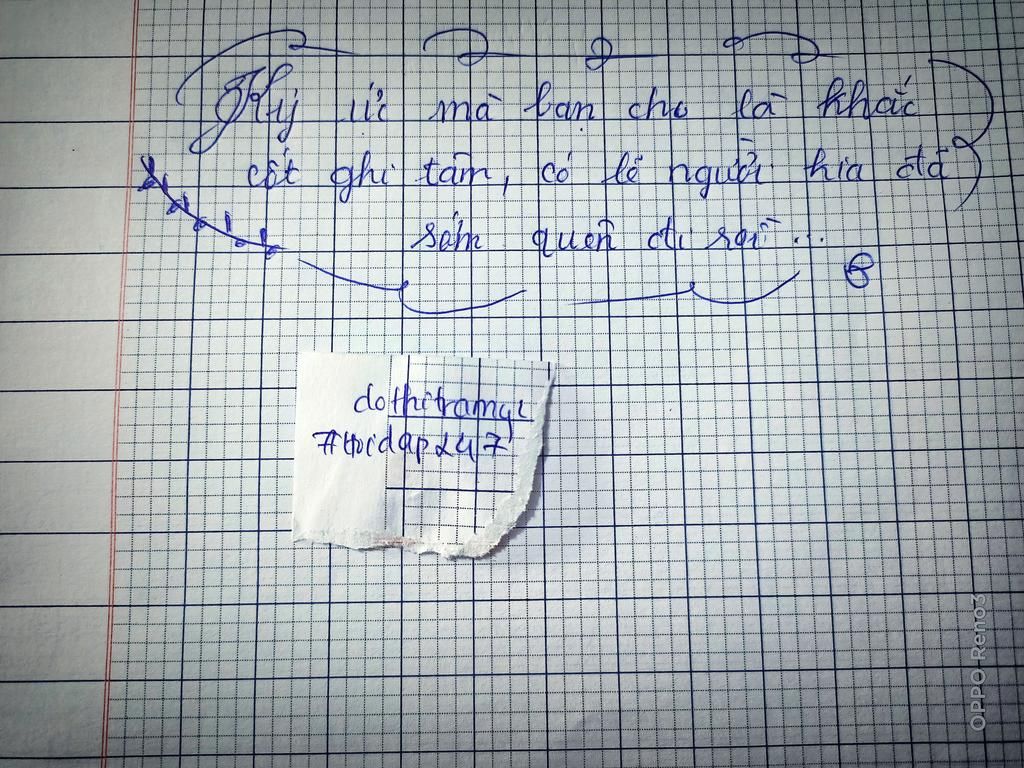 Ký ức mà bạn cho là khắc
cốt ghi tâm, có lẽ người kia đã
sớm quên đi rồi...
dothitramy
#hoidap247
OPPO Reno3